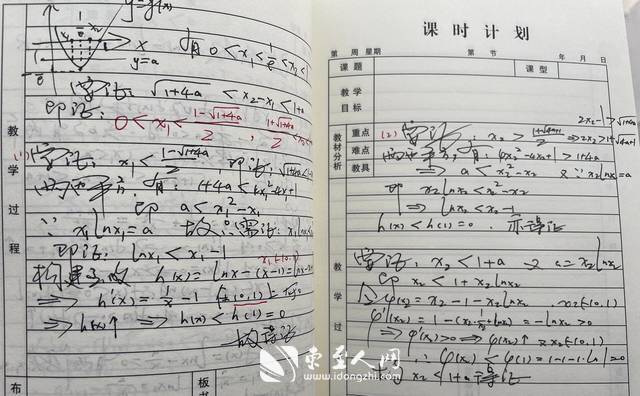 y=f(x)
有 0<x₁<1/e<x₂<1
y=a
x
需证: √(1+4a) < x₂-x₁ < 1+a
即证:
0<x₁<(1-√(1+4a))/2
(1) 需证: x₁<(1-√(1+4a))/2, 即证:
两边平方, 有: 1+4a<4x₁²-4x₁+1
即 a<x₁²-x₁
∵ x₁lnx₁=a 故只需证:
即证: lnx₁<x₁-1
构建函数 h(x)=lnx-(x-1)
⇒ h'(x)=1/x-1
⇒ h(x)↑ ⇒ h(x)<h(1)=0
故得证
教
学
过
程
布
板
课时计划
第 周 星期 第 节 年 月 日
课题
课型
教学
目标
教材分析
重点
难点
教具
(2) 需证: x₂>(1+√(1+4a))/2 ⇒ 2x₂-1>√(1+4a)
两边平方, 有: 4x₂²-4x₂+1>1+4a
⇒ a<x₂²-x₂ 又∵x₂lnx₂=a
即 x₂lnx₂<x₂²-x₂
⇒ lnx₂<x₂-1
h(x₂)<h(1)=0. 亦得证
教
学
过
需证: x₂<1+a 又 a=x₂lnx₂
即 x₂<1+x₂lnx₂
φ(x₂)=x₂-1-x₂lnx₂
φ'(x₂)=1-(x₂·1/x₂+lnx₂)=-lnx₂>0
⇒ φ'(x₂)>0 ⇒ φ(x₂)↑
∴ φ(x₂)<φ(1)=1-1-1·ln1=0
x₂<1+a 得证
东至人网
www.idongzhi.com